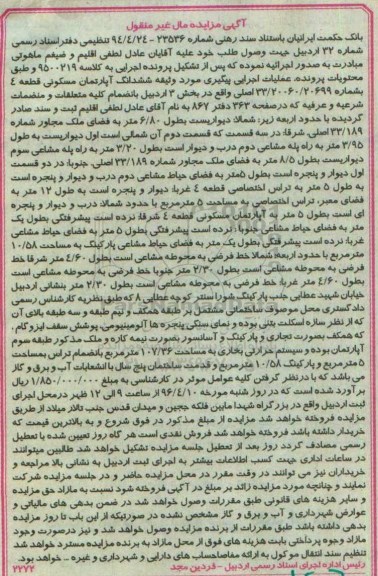 آگهی مزایده مال غیر منقول
بانک حکمت ایرانیان باستناد سند رهنی شماره ۲۳۵۳۶ - ۹۴/۴/۲۴ تنظیمی دفتر اسناد رسمی
شماره ۳۲ اردبیل جهت وصول طلب خود علیه آقایان عادل لطفی اقلیم و ضیغم ماهوتی
مبادرت به صدور اجرائیه نموده که پس از تشکیل پرونده اجرایی به کلاسه ۹۵۰۰۲۱۹ و طبق
محتویات پرونده، عملیات اجرایی پیگیری مورد وثیقه ششدانگ آپارتمان مسکونی قطعه ۴
بشماره ۳۳/۲۰۰۶۰/۲۰۶۹۹ اصلی واقع در بخش ۳ اردبیل بانضمام کلیه متعلقات و منضمات
شرعیه و عرفیه که درصفحه ۳۶۳ دفتر ۸۶۷ به نام آقای عادل لطفی اقلیم ثبت و سند صادر
گردیده با حدود اربعه زیر: شمالا: دیواریست بطول ۶/۸۰ متر به فضای ملک مجاور شماره
۳۳/۱۸۹ اصلی. شرقا: در سه قسمت که قسمت دوم آن شمالی است اول دیواریست به طول
۳/۹۵ متر به راه پله مشاعی دوم درب و دیوار است بطول ۳/۲۰ متر به راه پله مشاعی سوم
دیواریست بطول ۸/۵ متر به فضای ملک مجاور شماره ۳۳/۱۸۹ اصلی. جنوبا: در دو قسمت
اول دیوار و پنجره است بطول ۵متر به فضای حیاط مشاعی دوم درب و دیوار و پنجره است
به طول ۵ متر به تراس اختصاصی قطعه ۴ غربا: دیوار و پنجره است به طول ۱۲ متر به
فضای معبر، تراس اختصاصی به مساحت ۵ مترمربع با حدود شمالا: درب و دیوار و پنجره
ای است بطول ۵ متر به آپارتمان مسکونی قطعه ۴ شرقا: نرده است پیشرفتگی بطول یک
متر به فضای حیاط مشاعی جنوبا: نرده است پیشرفتگی بطول ۵ متر به فضای حیاط مشاعی
غربا: نرده است پیشرفتگی بطول یک متر به فضای حیاط مشاعی پارکینگ به مساحت ۱۰/۵۸
مترمربع با حدود اربعه: شمالا خط فرضی به محوطه مشاعی است بطول ۴/۶۰ متر شرقا خط
فرضی به محوطه مشاعی است بطول ۲/۳۰ متر جنوبا خط فرضی به محوطه مشاعی است
بطول ۴/۶۰ متر غربا: خط فرضی به محوطه مشاعی است بطول ۲/۳۰ متر بنشانی اردبیل
خیابان شهید عطایی جنب پارکینگ شورا سنتر کوچه عطایی ۸ که طبق نظریه کارشناس رسمی
دادگستری محل موصوف ساختمانی مشتمل بر طبقه همکف و نیم طبقه و سه طبقه بالای آن
که از نظر سازه اسکلت بتنی بوده و نمای سنگی پنجره ها آلومینیومی، پوشش سقف ایزوگام
که همکف بصورت تجاری و پارکینگ و آسانسور بصورت نیمه کاره و ملک مذکور طبقه سوم
آپارتمان بوده و سیستم حرارتی بخاری به مساحت ۱۰۷/۳۶ مترمربع بانضمام تراس بمساحت
۵ مترمربع و پارکینگ ۱۰/۵۸ مترمربع و قدمت ساختمان پنج سال با انشعابات آب و برق و گاز
می باشد که با درنظر گرفتن کلیه عوامل موثر در کارشناسی به مبلغ ۱/۸۵۰/۰۰۰/۰۰۰ ریال
برآورد شده است که در روز شنبه مورخه ۹۶/۴/۱۰ از ساعت ۹ الی ۱۲ ظهر درمحل اجرای
ثبت اردبیل واقع در بزرگراه شهدا مابین فلکه ججین و میدان قدس جنب تالار میلاد از طریق
مزایده فروخته خواهد شد مزایده از مبلغ مذکور در فوق شروع و به بالاترین قیمت که
خریدار داشته باشد فروخته خواهد شد فروش نقدی است هر گاه روز تعیین شده با تعطیل
رسمی مصادف گردد روز بعد از تعطیل جلسه مزایده تشکیل خواهد شد طالبین میتوانند
در ساعات اداری جهت کسب اطلاعات بیشتر به اجرای ثبت اردبیل به نشانی بالا مراجعه و
خریداران نیز می توانند در وقت مقرر در محل مزایده حاضر و در جلسه مزایده شرکت
نمایند و چنانچه مورد مزایده زائد بر مبلغ در آگهی فروخته شود نسبت به مازاد حق مزایده
و سایر هزینه های قانونی طبق مقررات وصول خواهد شد در ضمن بدهی های مالیاتی و
عوارض شهرداری و آب و برق و گاز مشخص نشده در صورتیکه از این باب تا روز مزایده
بدهی داشته باشد طبق مقررات از برنده مزایده وصول خواهد شد و نیز درصورت وجود
مازاد وجوه پرداختی بابت هزینه های فوق از محل مازاد به برنده مزایده مسترد خواهد شد
تنظیم سند انتقال موکول به ارائه مفاصاحساب های دارایی و شهرداری و غیره ... خواهد بود.
رئیس اداره اجرای اسناد رسمی اردبیل - فردین مجد
۲۲۷۲